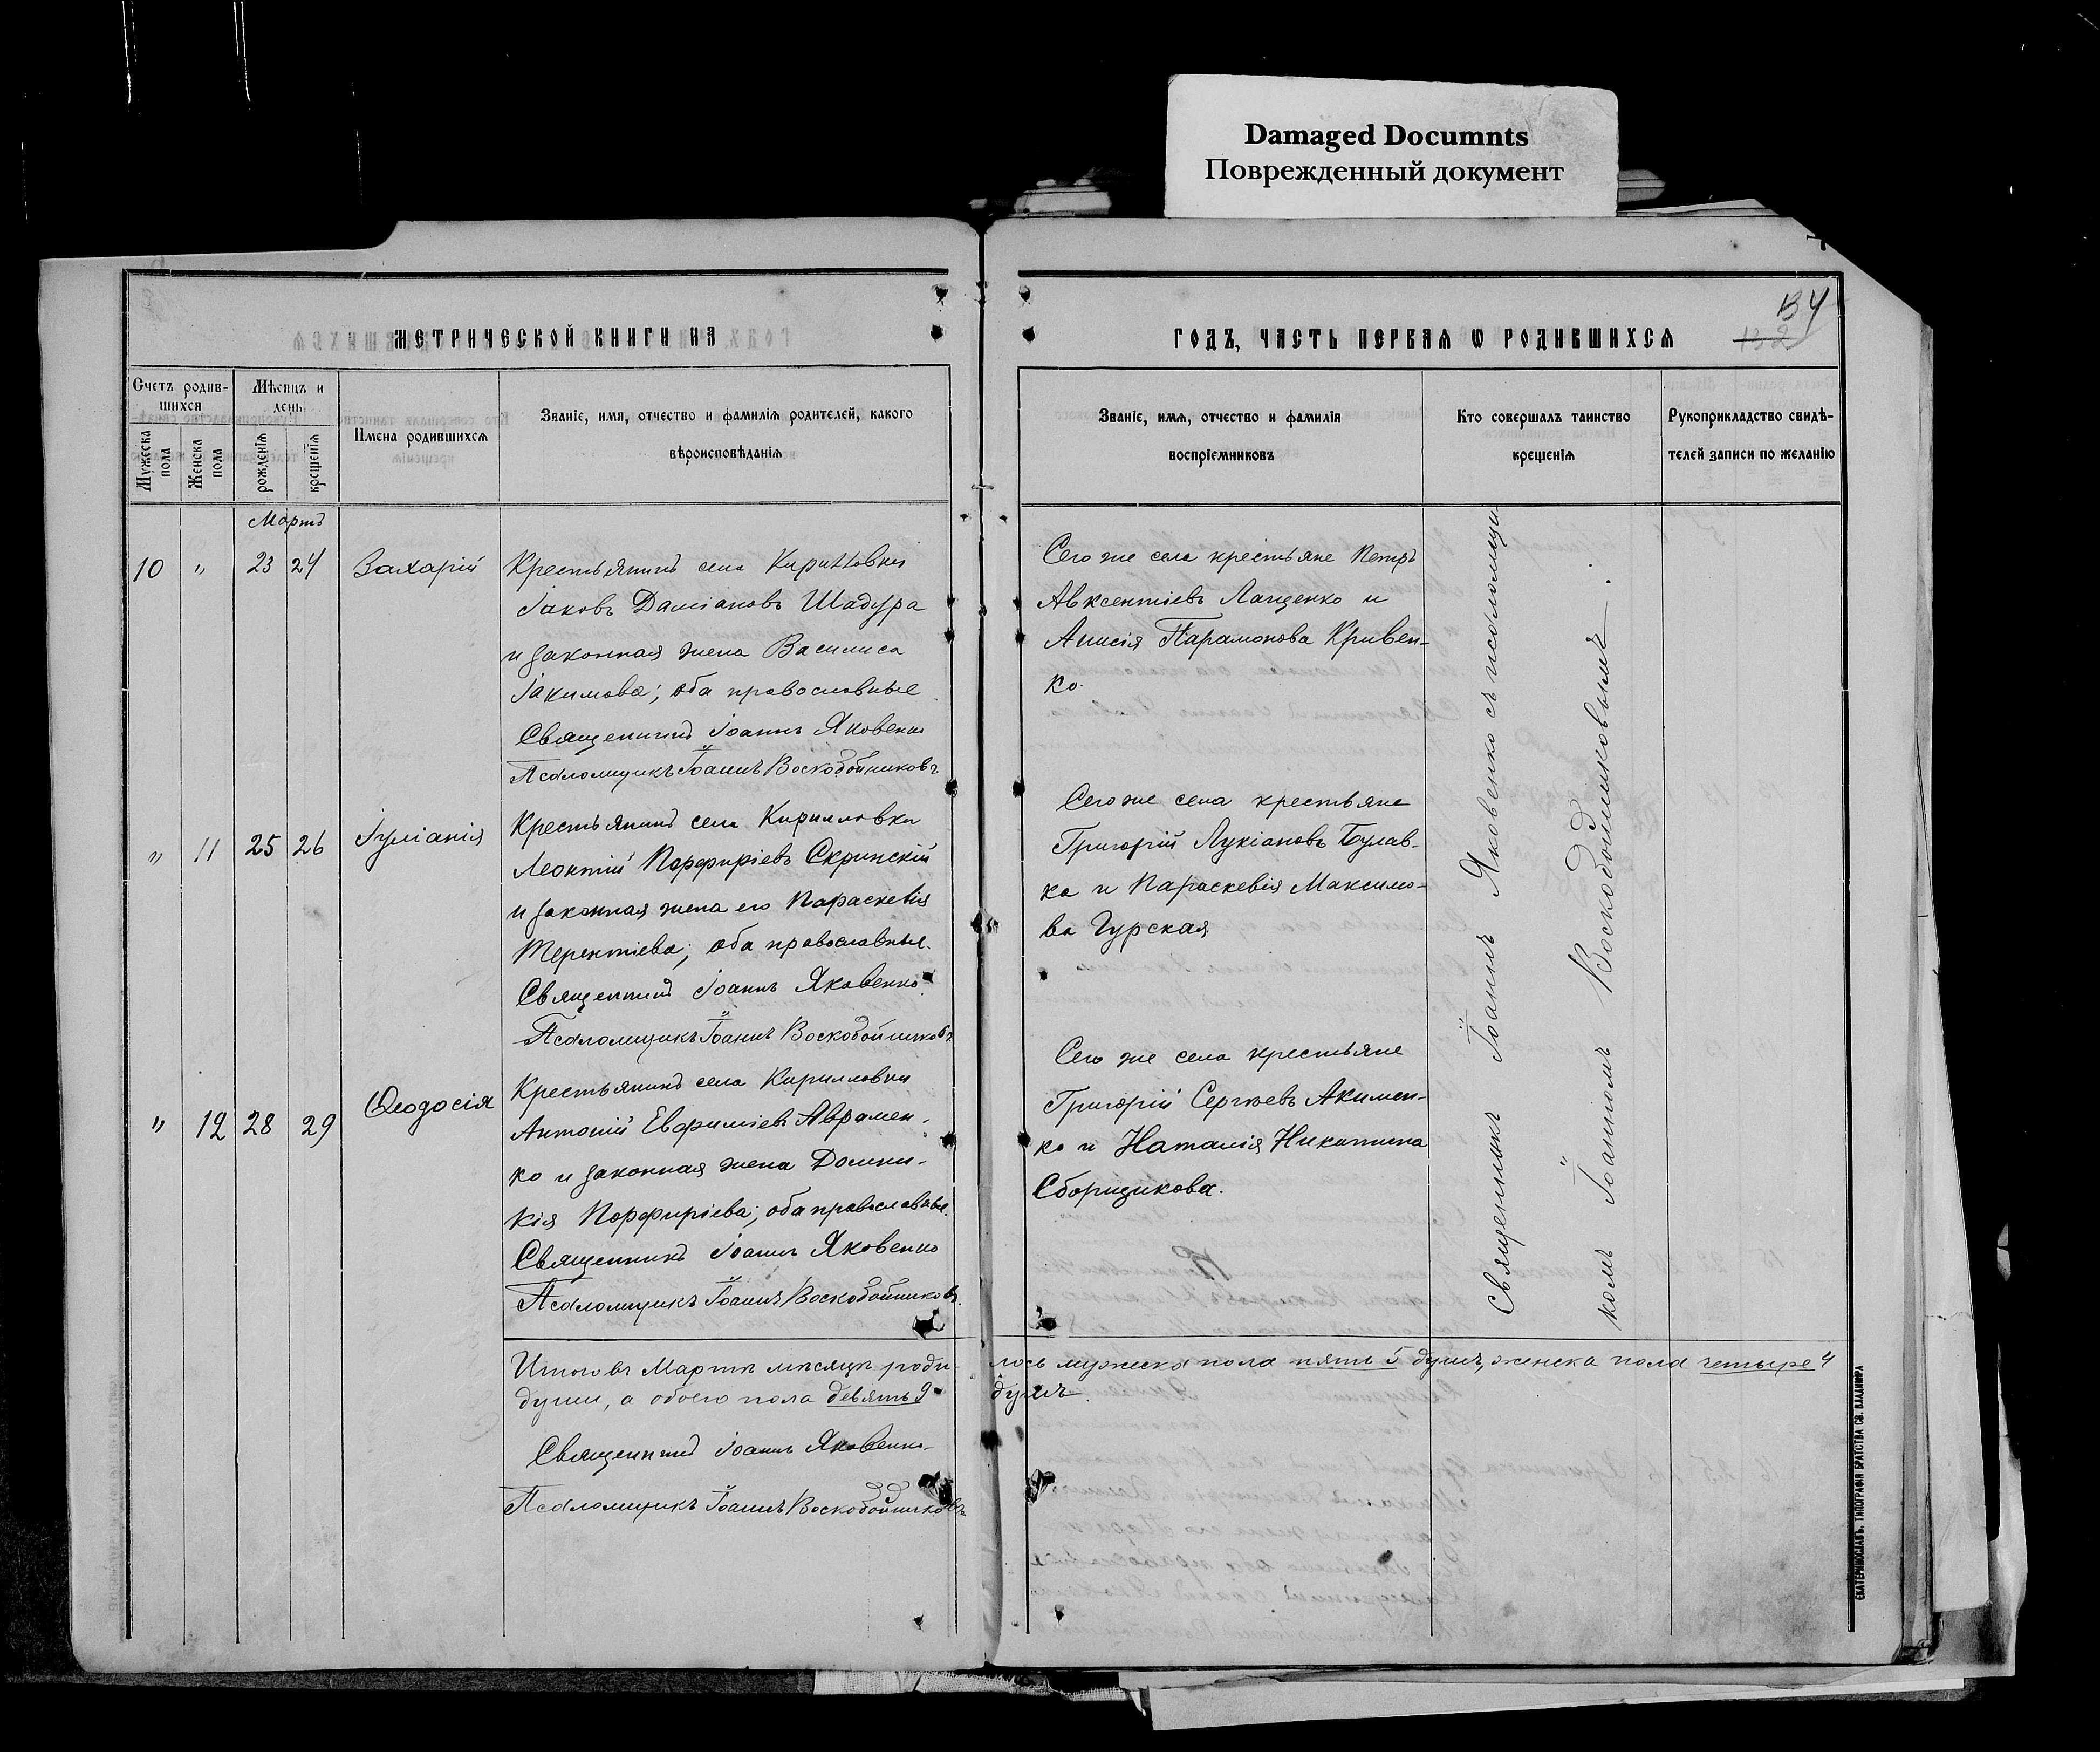 Damaged Documnts
Поврежденный документ
МЕТРИЧЕСКОЙ КНИГИ НА
Счетъ родив-
шихся
Мѣсяцъ и
день
Мужеска
пола
Женска
пола
рожденія
крещенія
Имена родившихся
Званіе, имя, отчество и фамилія родителей, какого
вѣроисповѣданія
Мартъ
10 " 23 24 Захарій
Крестьянинъ села Кирилловки
Іаковъ Даміановъ Шадура
и законная жена Василиса
Іакимова; оба православные
Священникъ Іоаннъ Яковенко
Псаломщикъ Іоаннъ Воскобойниковъ.
" 11 25 26 Іуліанія
Крестьянинъ села Кирилловки
Леонтій Порфиріевъ Скринскій
и законная жена его Параскевія
Терентіева; оба православные.
Священникъ Іоаннъ Яковенко
Псаломщикъ Іоаннъ Воскобойниковъ
" 12 28 29 Ѳеодосія
Крестьянинъ села Кирилловки
Антоній Евфиміевъ Аврамен-
ко и законная жена Домни-
кія Порфиріева; оба православные.
Священникъ Іоаннъ Яковенко
Псаломщикъ Іоаннъ Воскобойниковъ.
134
132
ГОДЪ, ЧАСТЬ ПЕРВАЯ Ѡ РОДИВШИХСЯ
Званіе, имя, отчество и фамилія
воспріемниковъ
Кто совершалъ таинство
крещенія
Рукоприкладство свидѣ-
телей записи по желанію
Сего же села крестьяне Петръ
Авксентіевъ Лащенко и
Анисія Парамонова Кривен-
ко.
Сего же села крестьяне
Григорій Лукіановъ Булав-
ка и Параскевія Максимо-
ва Гурская
Сего же села крестьяне
Григорій Сергѣевъ Акимен-
ко и Наталія Никитина
Сборщикова.
Священникъ Іоаннъ Яковенко съ псаломщи-
комъ Іоанномъ Воскобойниковымъ.
Итого въ Мартѣ мѣсяцѣ роди- лось мужеска пола пять 5 душъ, женска пола четыре 4
души, а обоего пола девять 9 душъ.
Священникъ Іоаннъ Яковенко
Псаломщикъ Іоаннъ Воскобойниковъ
ЕКАТЕРИНОСЛАВЪ. ТИПОГРАФІЯ БРАТСТВА СВ. ВЛАДИМІРА